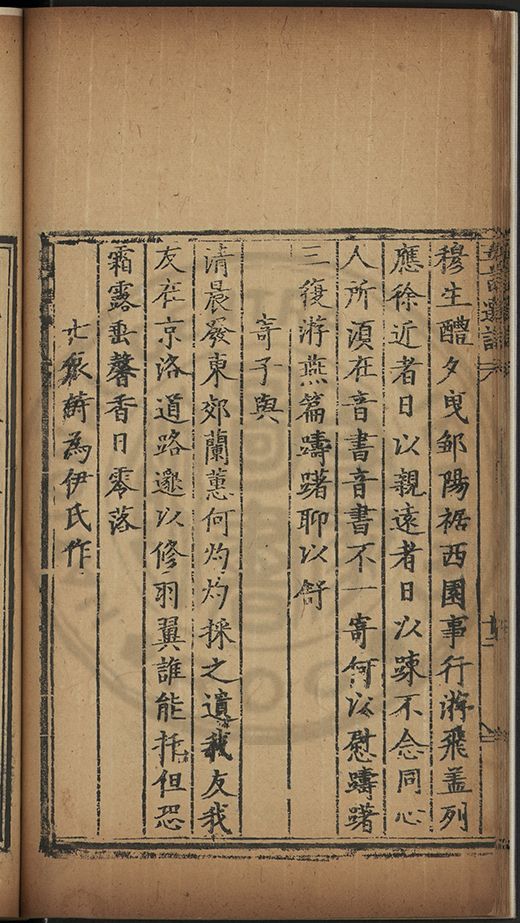 穆生醴夕曳鄒陽裾西園事行游飛盖列
應徐近者日以親遠者日以踈不念同心
人所湏在音書音書不一寄何以慰躊躇
三復游燕篇躊躇聊以舒
寄子與
清晨發東郊蘭蕙何灼灼採之遺我友我
友在京洛道路邈以修羽翼誰能托但恐
霜露垂馨香日零落
七哀詩為伊氏作